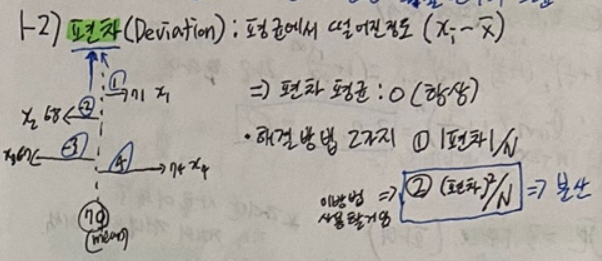 1-2) 편차(Deviation) : 평균에서 떨어진정도 (xᵢ-x̄)
① 71 x₁
x₂ 68 ②
x₃67 -3
4 74 x₄
70
(mean)
⇒ 편차 평균 : 0 (항상)
• 해결방법 2가지 ① |편차|/N
이방법 사용할거임 ⇒ ② (편차)²/N ⇒ 분산